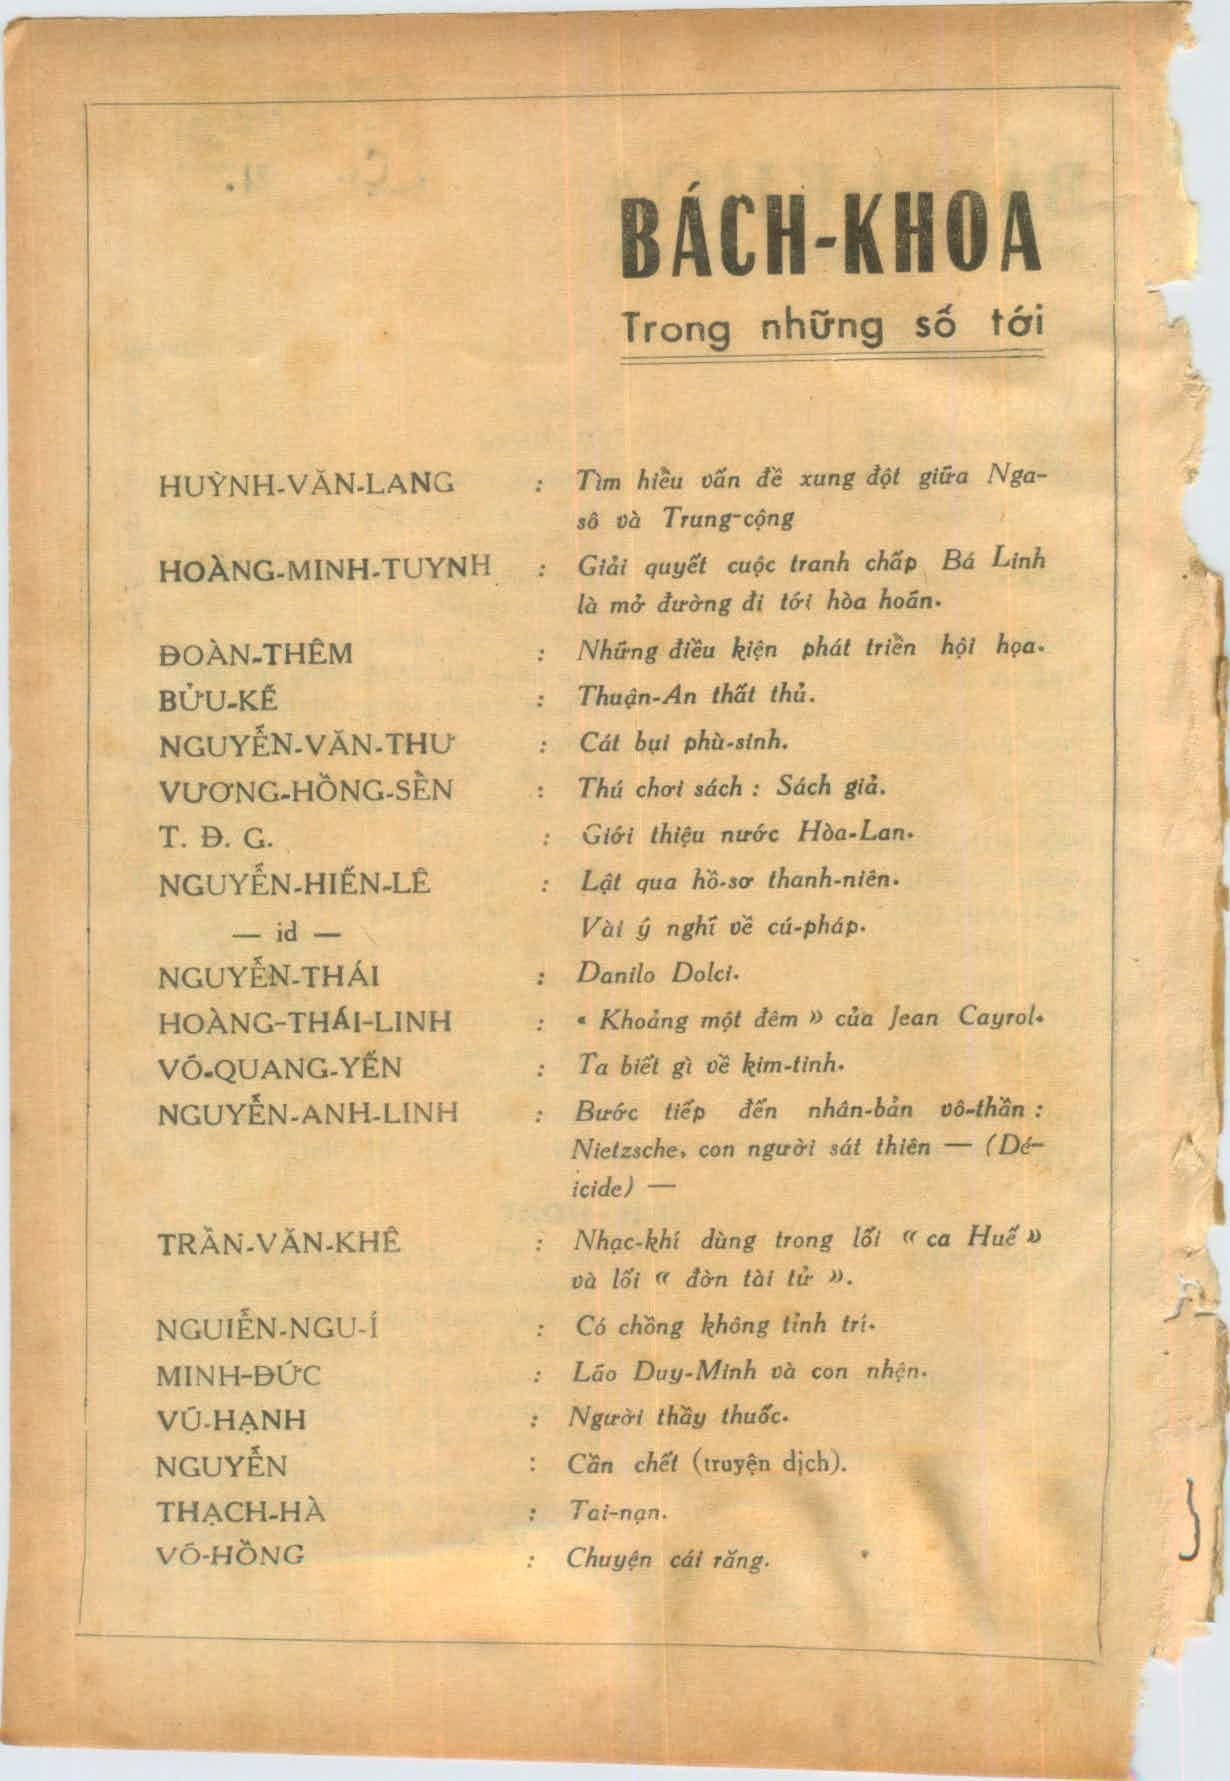 BÁCH-KHOA
Trong những số tới
HUỲNH-VĂN-LANG : Tìm hiểu vấn đề xung đột giữa Nga-
sô và Trung-cộng
HOÀNG-MINH-TUYNH : Giải quyết cuộc tranh chấp Bá Linh
là mở đường đi tới hòa hoãn.
ĐOÀN-THÊM : Những điều kiện phát triển hội họa.
BỬU-KẾ : Thuận-An thất thủ.
NGUYỄN-VĂN-THƯ : Cát bụi phù-sinh.
VƯƠNG-HỒNG-SỀN : Thú chơi sách : Sách giả.
T. Đ. G. : Giới thiệu nước Hòa-Lan.
NGUYỄN-HIẾN-LÊ : Lật qua hồ-sơ thanh-niên.
— id — Vài ý nghĩ về cú-pháp.
NGUYỄN-THÁI : Danilo Dolci.
HOÀNG-THÁI-LINH : « Khoảng một đêm » của Jean Cayrol.
VÕ-QUANG-YẾN : Ta biết gì về kim-tinh.
NGUYỄN-ANH-LINH : Bước tiếp đến nhân-bản vô-thần :
Nietzsche, con người sát thiên — (Dé-
icide) —
TRẦN-VĂN-KHÊ : Nhạc-khí dùng trong lối « ca Huế »
và lối « đờn tài tử ».
NGUIỄN-NGU-Í : Có chồng không tỉnh trí.
MINH-ĐỨC : Lão Duy-Minh và con nhện.
VŨ-HẠNH : Người thầy thuốc.
NGUYỄN : Cần chết (truyện dịch).
THẠCH-HÀ : Tai-nạn.
VÕ-HỒNG : Chuyện cái răng.